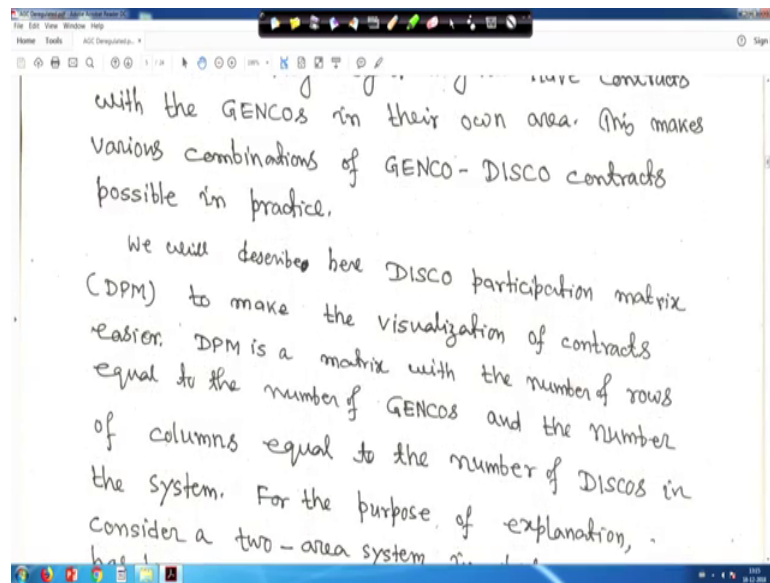 AGC Deregulated.pdf - Adobe Acrobat Reader DC
File Edit View Window Help
Home Tools AGC Deregulated.p... × Sign
have contracts
with the GENCOs in their own area. This makes
various combinations of GENCO - DISCO contracts
possible in practice.
We will describe here DISCO participation matrix
(DPM) to make the visualization of contracts
easier. DPM is a matrix with the number of rows
equal to the number of GENCOs and the number
of columns equal to the number of DISCOs in
the system. For the purpose of explanation,
consider a two-area system